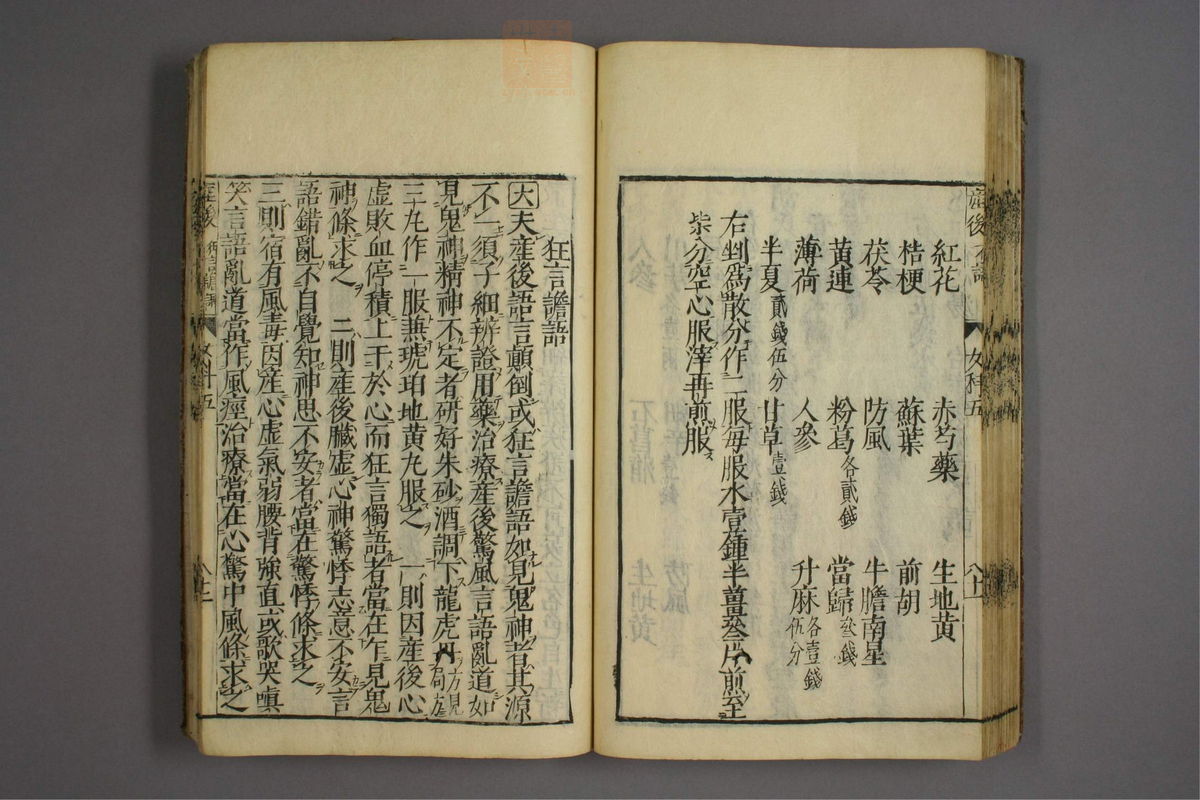 紅花 赤芍藥 生地黃
桔梗 蘇葉 前胡
茯苓 防風 牛膽南星
黃連 粉葛各貳錢 當歸叄錢
薄荷 人參 升麻各壹錢伍分
半夏貳錢伍分 甘草壹錢
右剉爲散分作二服每服水壹鍾半薑叄片煎至
柒分空心服滓再煎服
狂言譫語
大夫產後語言顛倒或狂言譫語如見鬼神者其源
不一須子細辨證用藥治療產後驚風言語亂道如
見鬼神精神不定者研好朱砂酒調下龍虎丹方見局方
三丸作一服兼琥珀地黃丸服之 一則因產後心
虛敗血停積上干於心而狂言獨語者當在乍見鬼
神條求之 二則產後臟虛心神驚悸志意不安言
語錯亂不自覺知神思不安者當在驚悸條求之
三則宿有風毒因產心虛氣弱腰背強直或歌哭嗔
笑言語亂道當作風痙治療當在心驚中風條求之
產後 狂言譫語 女科五